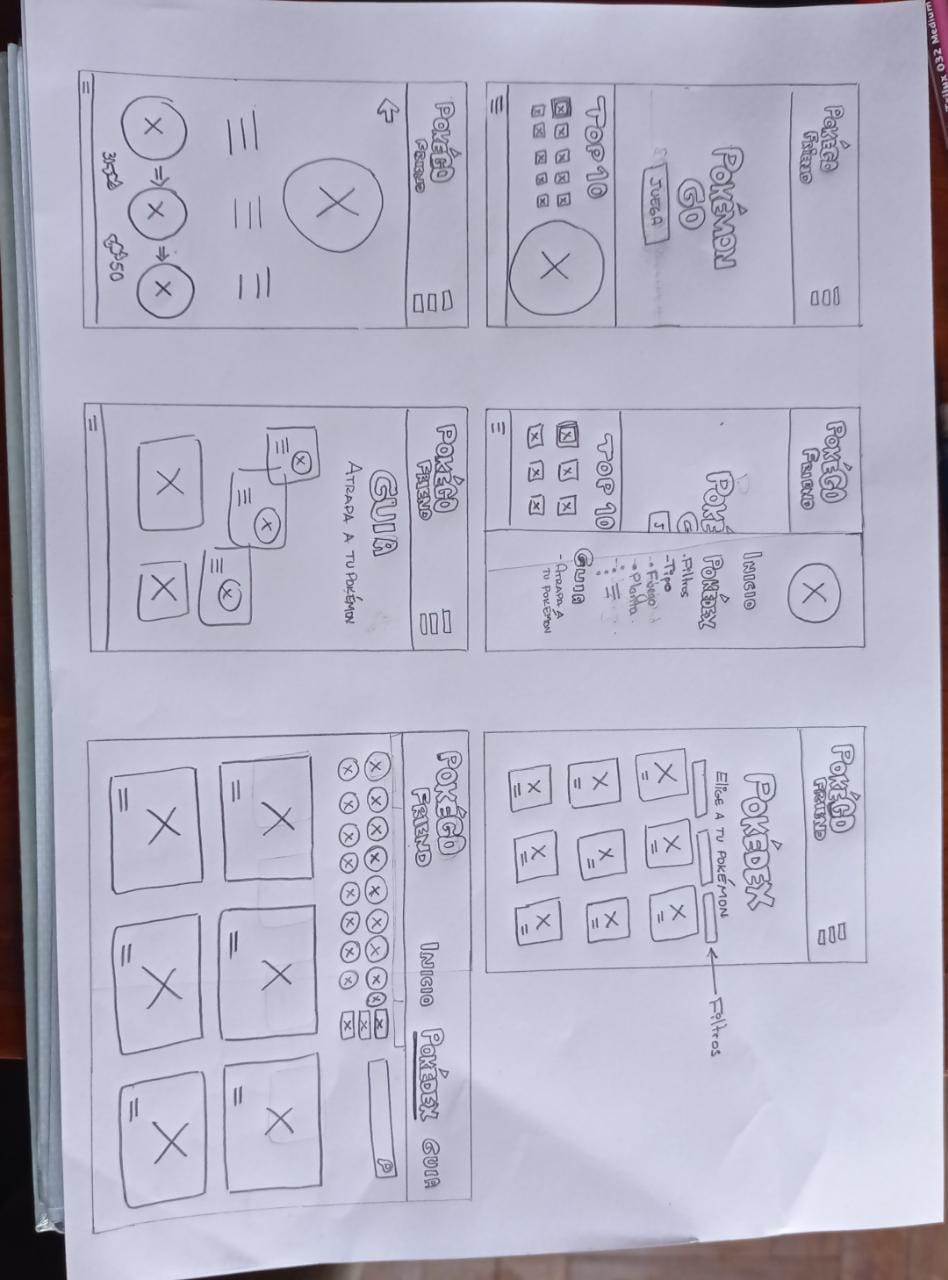 ilux 032 Medium
POKÉGO
FRIEND
POKÉMON
GO
JUEGA
TOP 10
POKÉGO
FRIEND
POKÉ
G
J
TOP 10
INICIO
POKÉDEX
-Filtros
-Tipo
• Fuego
• Planta
GUIA
- ATRAPA A
TU POKÉMON
POKÉGO
FRIEND
POKÉDEX
ELIGE A TU POKÉMON
Filtros
POKÉGO
FRIEND
50
POKÉGO
FRIEND
GUIA
ATRAPA A TU POKÉMON
POKÉGO
FRIEND
INICIO POKÉDEX GUIA